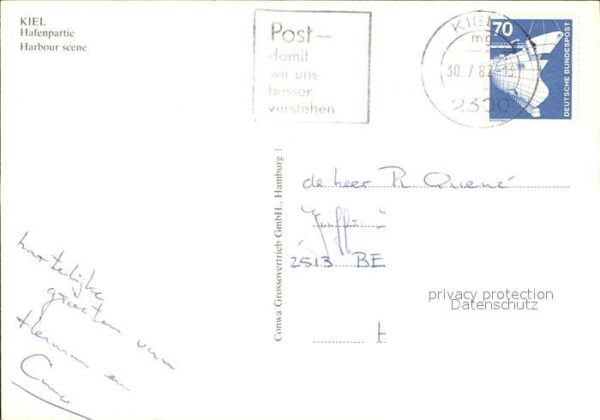 KIEL
Hafenpartie
Harbour scene
Post–
damit
wir uns
besser
verstehen
KIEL
mg
30.7.82-13
2300
70
DEUTSCHE BUNDESPOST
Conwa Grossovertrieb GmbH., Hamburg 1
de heer R Quené
2513 BE
hartelijke
groeten van
Herman en
privacy protection
Datenschutz